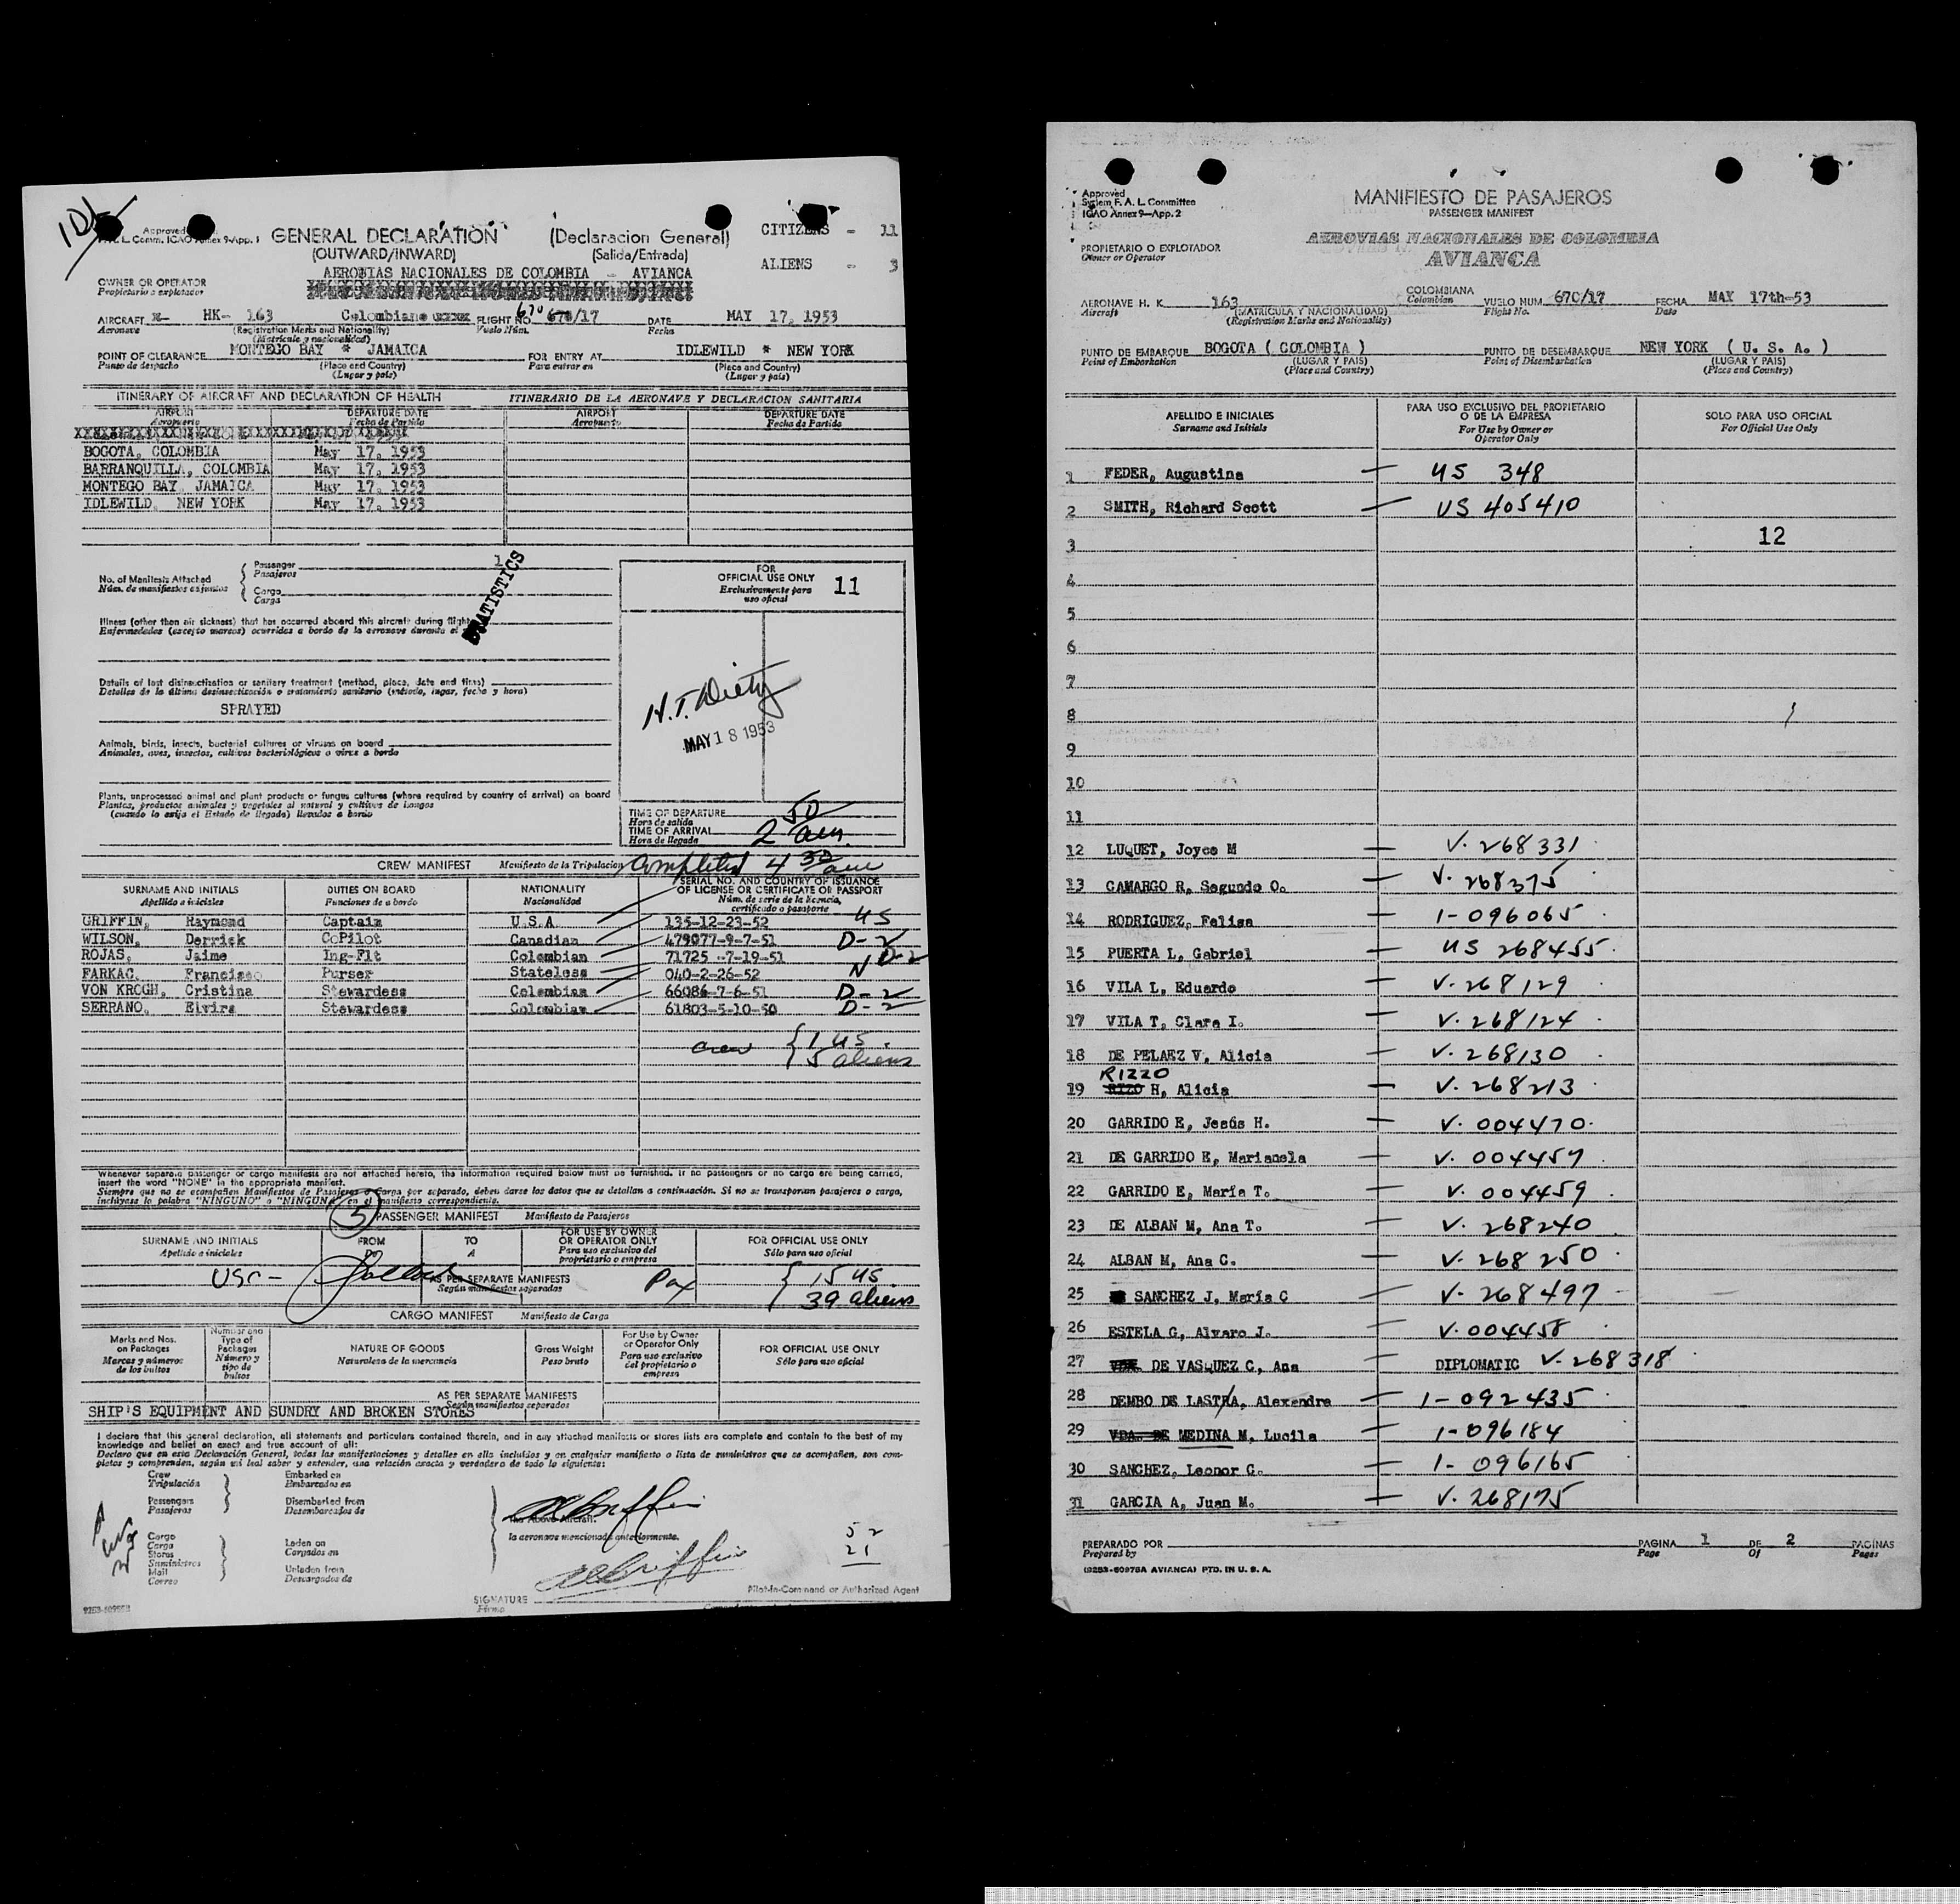 Approved
F.A.L. Comm. ICAO Annex 9-App. 1
GENERAL DECLARATION (Declaracion General)
(OUTWARD/INWARD) (Salida/Entrada)
CITIZENS - 11
ALIENS - 3
OWNER OR OPERATOR
Propietario o explotador
AEROVIAS NACIONALES DE COLOMBIA - AVIANCA
AIRCRAFT HK- 163 Colombiana FLIGHT NO. 670/17 DATE MAY 17, 1953
Aeronave (Registration Marks and Nationality) Vuelo Núm. Fecha
(Matrícula y nacionalidad)
POINT OF CLEARANCE MONTEGO BAY * JAMAICA FOR ENTRY AT IDLEWILD * NEW YORK
Punto de despacho (Place and Country) Para entrar en (Place and Country)
(Lugar y país) (Lugar y país)
ITINERARY OF AIRCRAFT AND DECLARATION OF HEALTH ITINERARIO DE LA AERONAVE Y DECLARACION SANITARIA
AIRPORT DEPARTURE DATE AIRPORT DEPARTURE DATE
Aeropuerto Fecha de Partida Aeropuerto Fecha de Partida
BOGOTA, COLOMBIA May 17, 1953
BARRANQUILLA, COLOMBIA May 17, 1953
MONTEGO BAY, JAMAICA May 17, 1953
IDLEWILD, NEW YORK May 17, 1953
No. of Manifests Attached
Núm. de manifiestos adjuntos
Passenger 1
Pasajeros
Cargo
Carga
STATISTICS
FOR
OFFICIAL USE ONLY 11
Exclusivamente para
uso oficial
Illness (other than air sickness) that has occurred aboard this aircraft during flight
Enfermedades (excepto mareos) ocurridas a bordo de la aeronave durante el
Details of last disinsectization or sanitary treatment (method, place, date and time)
Detalles de la última desinsectización o tratamiento sanitario (método, lugar, fecha y hora)
SPRAYED
MAY 18 1953
Animals, birds, insects, bacterial cultures or viruses on board
Animales, aves, insectos, cultivos bacteriológicos o virus a bordo
Plants, unprocessed animal and plant products or fungus cultures (where required by country of arrival) on board
Plantas, productos animales y vegetales al natural y cultivos de hongos
(cuando lo exija el Estado de llegada) llevados a bordo
TIME OF DEPARTURE
Hora de salida
TIME OF ARRIVAL 2 50 am.
Hora de llegada
CREW MANIFEST Manifiesto de la Tripulacion Completed 4 30 am
SURNAME AND INITIALS DUTIES ON BOARD NATIONALITY SERIAL NO. AND COUNTRY OF ISSUANCE
OF LICENSE OR CERTIFICATE OR PASSPORT
Apellido e iniciales Funciones de a bordo Nacionalidad Núm. de serie de la licencia,
certificado o pasaporte
GRIFFIN, Raymond Captain U.S.A. 135-12-23-52 US
WILSON, Derrick CoPilot Canadian 479077-9-7-51 D-2
ROJAS, Jaime Ing-Flt Colombian 71725 -7-19-51 D-2
FARKAC, Francisco Purser Stateless 040-2-26-52 N
VON KROGH, Cristina Stewardess Colombian 66086-7-6-51 D-2
SERRANO, Elvira Stewardess Colombian 61803-5-10-50 D-2
crew { 1 US.
5 aliens
Whenever separate passenger or cargo manifests are not attached hereto, the information required below must be furnished. If no passengers or no cargo are being carried,
insert the word "NONE" in the appropriate manifest.
Siempre que no se acompañen Manifiestos de Pasajeros o Carga por separado, deben darse los datos que se detallan a continuación. Si no se transportan pasajeros o carga,
inclúyase la palabra "NINGUNO" o "NINGUNA" en el manifiesto correspondiente.
5 PASSENGER MANIFEST Manifiesto de Pasajeros
SURNAME AND INITIALS FROM TO FOR USE BY OWNER
OR OPERATOR ONLY FOR OFFICIAL USE ONLY
Apellido e iniciales De A Para uso exclusivo del
propietario o empresa Sólo para uso oficial
USC- AS PER SEPARATE MANIFESTS Pax { 15 US.
Según manifiestos separados 39 aliens
CARGO MANIFEST Manifiesto de Carga
Marks and Nos.
on Packages
Marcas y números
de los bultos
Number and
Type of
Packages
Número y
tipo de
bultos
NATURE OF GOODS
Naturaleza de la mercancía
Gross Weight
Peso bruto
For Use by Owner
or Operator Only
Para uso exclusivo
del propietario o
empresa
FOR OFFICIAL USE ONLY
Sólo para uso oficial
AS PER SEPARATE MANIFESTS
Según manifiestos separados
SHIP'S EQUIPMENT AND SUNDRY AND BROKEN STORES
I declare that this general declaration, all statements and particulars contained therein, and in any attached manifests or stores lists are complete and contain to the best of my
knowledge and belief an exact and true account of all:
Declaro que en esta Declaración General, todas las manifestaciones y detalles en ella incluidos y en cualquier manifiesto o lista de suministros que se acompañen, son com-
pletos y comprenden, según mi leal saber y entender, una relación exacta y verdadera de todo lo siguiente:
Crew
Tripulación
Embarked on
Embarcados en
Passengers
Pasajeros
Disembarked from
Desembarcados de
The Above Aircraft.
la aeronave mencionada anteriormente.
Cargo
Carga
Stores
Suministros
Mail
Correo
Laden on
Cargados en
Unladen from
Descargados de
52
21
SIGNATURE
Firma
Pilot-in-Command or Authorized Agent
Approved
System F. A. L. Committee
ICAO Annex 9-App. 2
MANIFIESTO DE PASAJEROS
PASSENGER MANIFEST
PROPIETARIO O EXPLOTADOR
Owner or Operator
AEROVIAS NACIONALES DE COLOMBIA
AVIANCA
AERONAVE H. K. 163 COLOMBIANA VUELO NUM. 670/17 FECHA MAY 17th-53
Aircraft (MATRICULA Y NACIONALIDAD) Colombian Flight No. Date
(Registration Marks and Nationality)
PUNTO DE EMBARQUE BOGOTA ( COLOMBIA ) PUNTO DE DESEMBARQUE NEW YORK ( U. S. A. )
Point of Embarkation (LUGAR Y PAIS) Point of Disembarkation (LUGAR Y PAIS)
(Place and Country) (Place and Country)
APELLIDO E INICIALES
Surname and Initials
PARA USO EXCLUSIVO DEL PROPIETARIO
O DE LA EMPRESA
For Use by Owner or
Operator Only
SOLO PARA USO OFICIAL
For Official Use Only
1 FEDER, Augustina — US 348
2 SMITH, Richard Scott — US 405410
3 12
4
5
6
7
8
9
10
11
12 LUQUET, Joyce M — V. 268331
13 CAMARGO R, Segundo O. — V. 268375
14 RODRIGUEZ, Felisa — 1-096065
15 PUERTA L, Gabriel — US 268455
16 VILA L, Eduardo — V-268129
17 VILA T, Clara I. — V. 268124
18 DE PELAEZ V, Alicia — V. 268130
RIZZO
19 RIZO H, Alicia — V. 268213
20 GARRIDO E, Jesús H. — V. 004470
21 DE GARRIDO E, Marianela — V. 004457
22 GARRIDO E, María T. — V. 004459
23 DE ALBAN M, Ana T. — V. 268240
24 ALBAN M, Ana C. — V. 268250
25 SANCHEZ J, María C — V- 268497
26 ESTELA G, Alvaro J. — V. 004458
27 VDA. DE VASQUEZ C, Ana — DIPLOMATIC V-268318
28 DEMBO DE LASTRA, Alexandra — 1-092435
29 VDA. DE MEDINA M, Lucila — 1-096184
30 SANCHEZ, Leonor G. — 1- 096165
31 GARCIA A, Juan M. — V. 268175
PREPARADO POR
Prepared by
PAGINA 1 DE 2 PAGINAS
Page Of Pages
(9253-60975A AVIANCA) PTD. IN U. S. A.